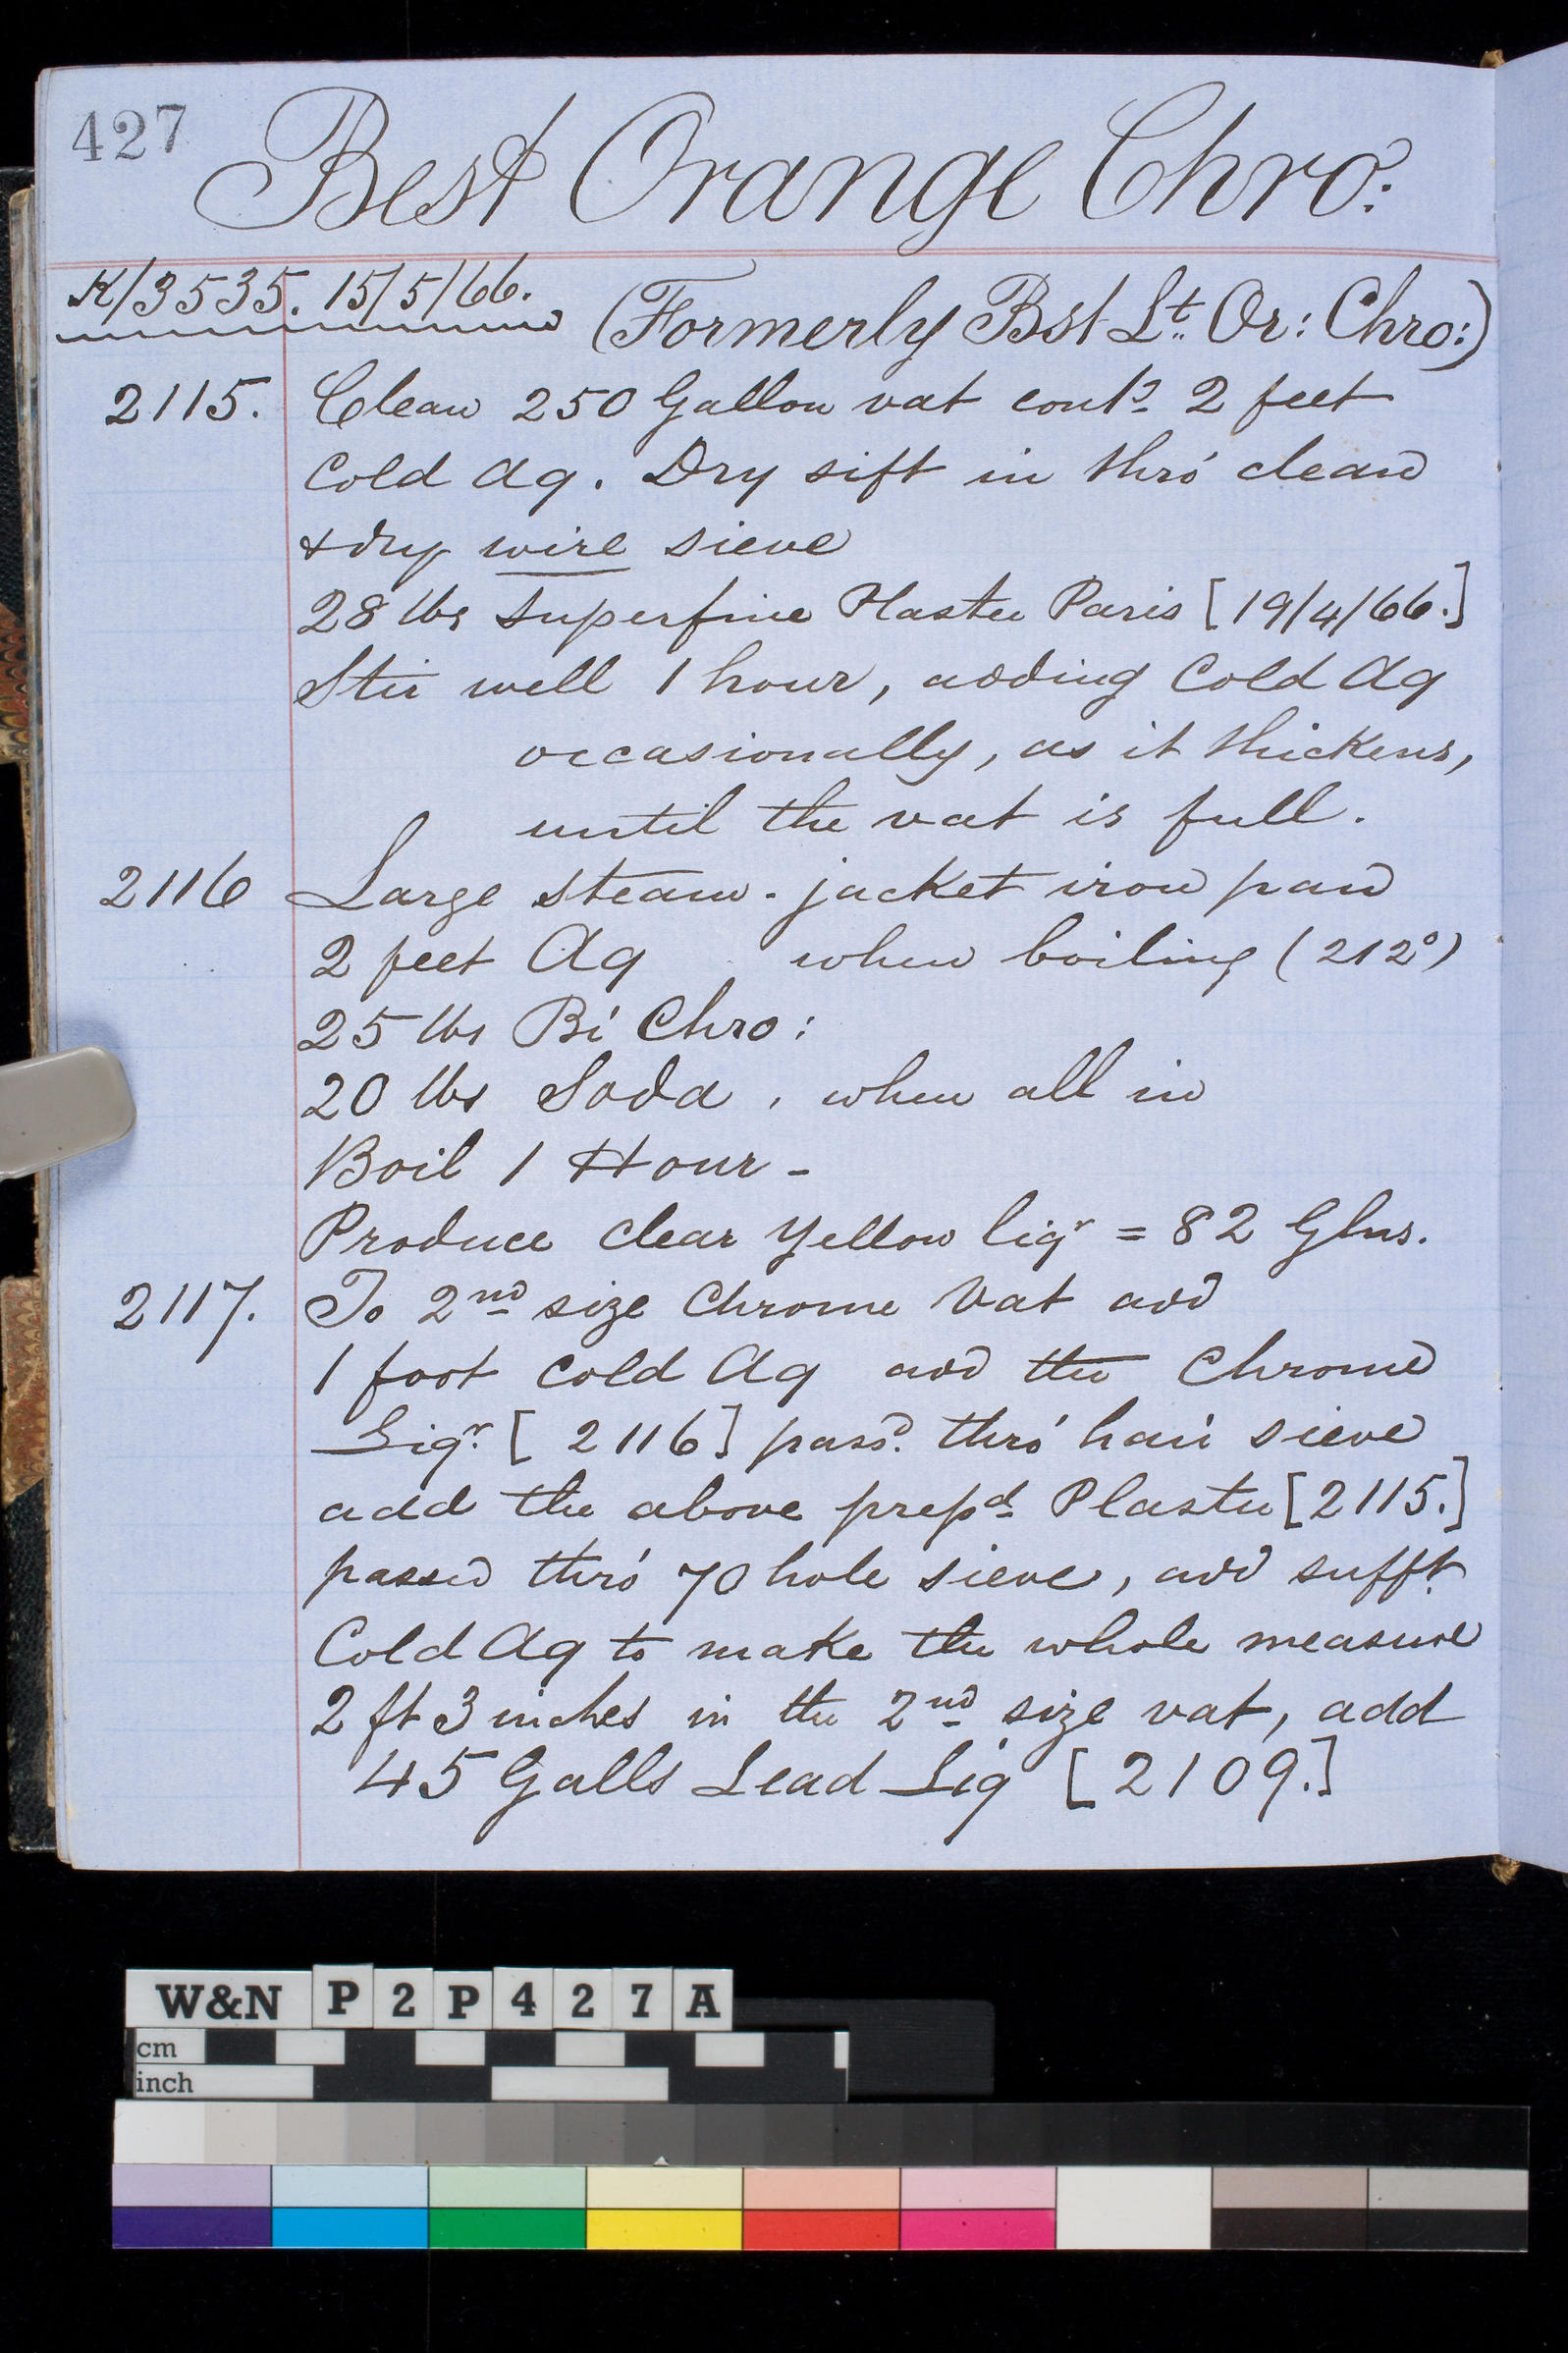 427
Best Orange Chro:
K/3535. 15/5/66.
(Formerly Bst Lt. Or: Chro:)
2115. Clean 250 Gallon vat contg 2 feet
Cold Aq. Dry sift in thro' clean
& dry wire sieve
28 lbs superfine Plaster Paris [19/4/66.]
Stir well 1 hour, adding Cold Aq
occasionally, as it thickens,
until the vat is full.
2116 Large steam-jacket iron pan
2 feet Aq when boiling (212°)
25 lbs Bi Chro:
20 lbs Soda, when all in
Boil 1 Hour -
Produce clear Yellow liqr = 82 Glns.
2117. To 2nd size Chrome Vat add
1 foot Cold Aq add the Chrome
Liqr. [2116] passd. thro' hair sieve
add the above prepd Plaster [2115.]
passed thro' 70 hole sieve, add sufft.
Cold Aq to make the whole measure
2 ft 3 inches in the 2nd size vat, add
45 Galls Lead Liq [2109.]
W&N P2P427A
cm
inch